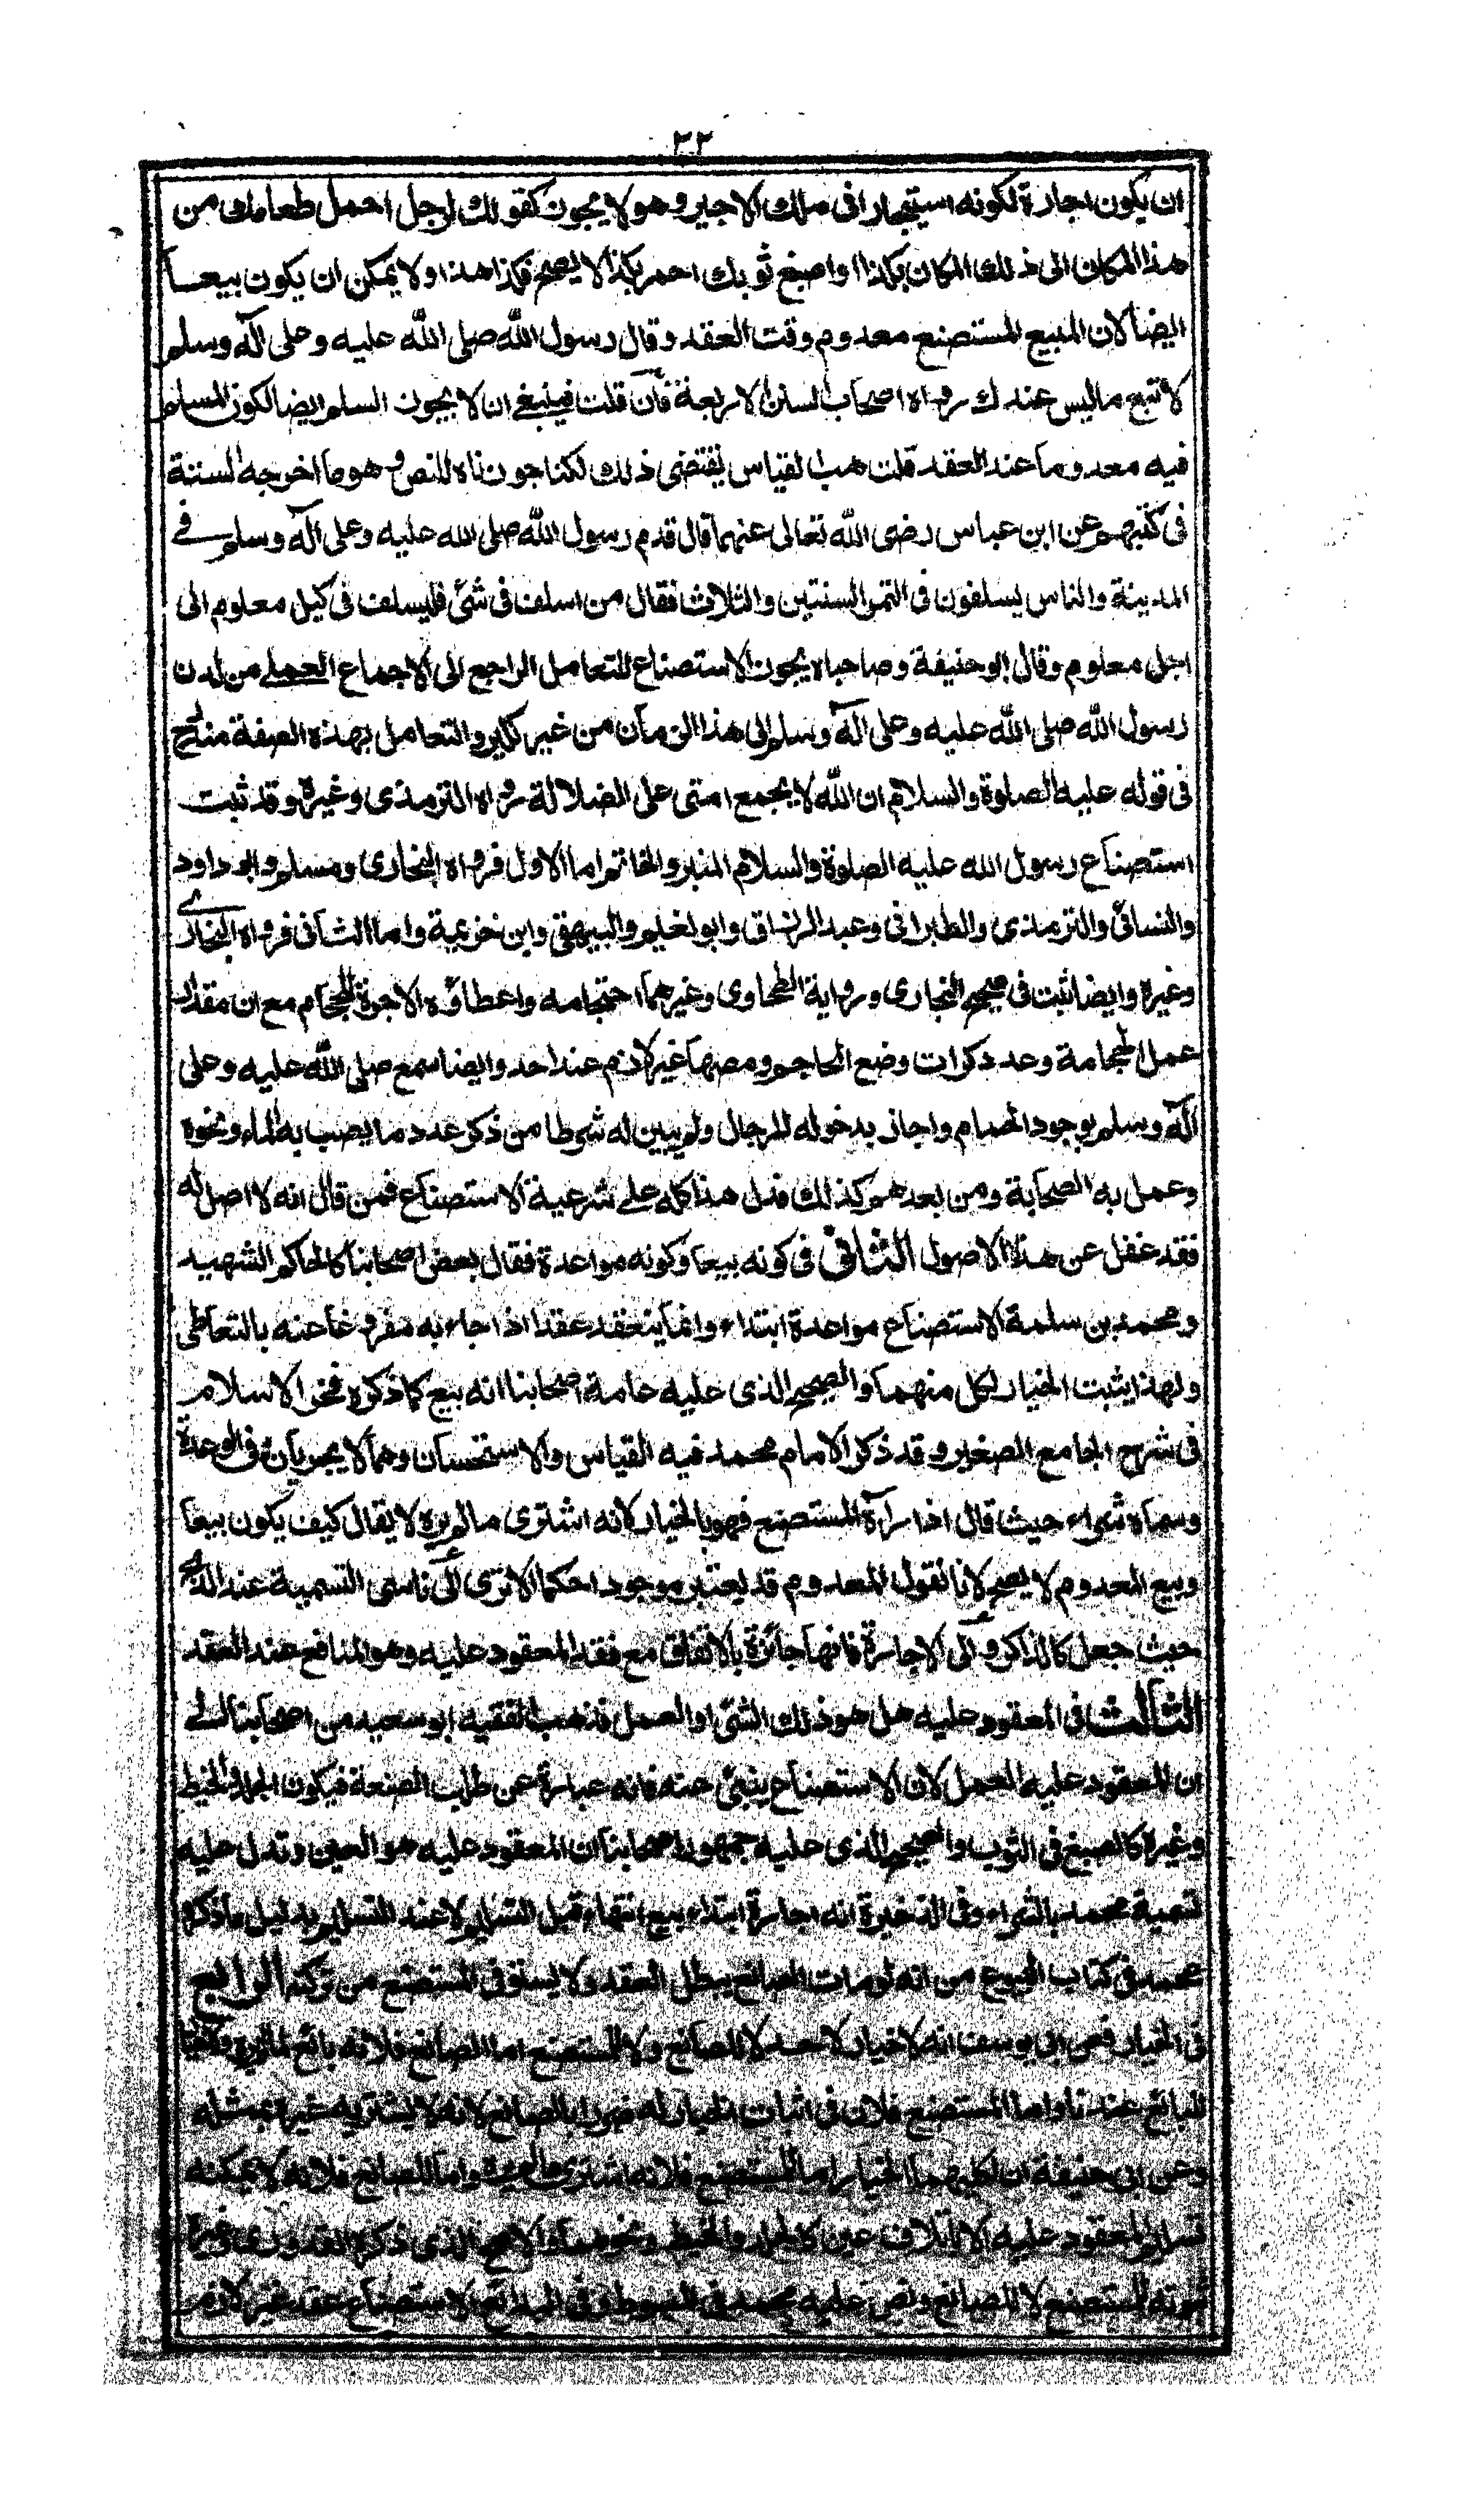 ٣٢
ان يكون اجارة لكونه استيجارا فى ملك الاجير وهو لا يجوز كقولك لرجل احمل طعامك من
هذا المكان الى ذلك المكان بكذا او اصبغ ثوبك احمر بكذا لا يصح فكذا هذا ولا يمكن ان يكون بيعا
ايضا لان المبيع المستصنع معدوم وقت العقد وقال رسول الله صلى الله عليه وعلى آله وسلم
لا تبع ما ليس عندك رواه اصحاب السنن الاربعة فان قلت فينبغى ان لا يجوز السلم ايضا لكون المسلم
فيه معدوما عند العقد قلت هب القياس يقتضى ذلك لكنا جوزناه للنص وهو ما اخرجه الستة
فى كتبهم عن ابن عباس رضى الله تعالى عنهما قال قدم رسول الله صلى الله عليه وعلى آله وسلم فى
المدينة والناس يسلفون فى التمر السنتين والثلاث فقال من اسلف فى شئ فليسلف فى كيل معلوم الى
اجل معلوم وقال ابو حنيفة وصاحباه يجوز الاستصناع للتعامل الراجع الى الاجماع العملى من لدن
رسول الله صلى الله عليه وعلى آله وسلم الى هذا الزمان من غير نكير والتعامل بهذه الصفة مندرج
فى قوله عليه الصلوة والسلام ان الله لا يجمع امتى على الضلالة رواه الترمذى وغيره وقد ثبت
استصناع رسول الله عليه الصلوة والسلام المنبر والخاتم اما الاول فرواه البخارى ومسلم وابو داود
والنسائى والترمذى والطبرانى وعبد الرزاق وابو نعيم والبيهقى وابن خزيمة واما الثانى فرواه البخارى
وغيره وايضا ثبت فى صحيح البخارى ورواية الطحاوى وغيرهما احتجامه واعطاؤه الاجرة للحجام مع ان مقدار
عمل الحجامة وعدد كرات وضع المحاجم ومصها غير لازم عند احد وايضا سمع صلى الله عليه وعلى
آله وسلم بوجود الحمام واجاز بدخوله للرجال ولم يبين له شرطا من ذكر عدد ما يصب به الماء ونحوه
وعمل به الصحابة ومن بعدهم كذلك فدل هذا كله على شرعية الاستصناع فمن قال انه لا اصل له
فقد غفل عن هذا الاصول الثانى فى كونه بيعا وكونه مواعدة فقال بعض اصحابنا كالحاكم الشهيد
ومحمد بن سلمة الاستصناع مواعدة ابتداء وانما ينعقد عقدا اذا جاء به مفروغا عنه بالتعاطى
ولهذا يثبت الخيار لكل منهما والصحيح الذى عليه عامة اصحابنا انه بيع كما ذكره فخر الاسلام
فى شرح الجامع الصغير وقد ذكر الامام محمد فيه القياس والاستحسان وهما لا يجريان فى الوعدة
وسماه شراء حيث قال اذا رآه المستصنع فهو بالخيار لانه اشترى ما لم يره لا يقال كيف يكون بيعا
وبيع المعدوم لا يصح لانا نقول المعدوم قد يعتبر موجودا حكما الا ترى الى ناسى التسمية عند الذبح
حيث جعل كالذاكر والى الاجارة فانها جائزة بالاتفاق مع فقد المعقود عليه وهو المنافع عند العقد
الثالث فى المعقود عليه هل هو ذلك الشئ او العمل فذهب الفقيه ابو سعيد من اصحابنا الى
ان المعقود عليه العمل لان الاستصناع ينبئ عنه فانه عبارة عن طلب الصنعة فيكون الجلد والخيط
وغيره كالصبغ فى الثوب والصحيح الذى عليه جمهور اصحابنا ان المعقود عليه هو العين وتدل عليه
تسمية محمد بالشراء وفى الذخيرة انه اجارة ابتداء بيع انتهاء قبل التسليم لا عند التسليم بدليل ما ذكره
محمد فى كتاب البيوع من انه لو مات الصانع يبطل العقد ولا يستوفى المستصنع من تركته الرابع
فى الخيار فعن ابى يوسف انه لا خيار لاحد لا للصانع ولا للمستصنع اما الصانع فلانه بائع لم يره ولا خيار
للبائع عندنا واما المستصنع فلان فى اثبات الخيار له ضررا بالصانع لانه لا يشتريه غيره بمثله
وعن ابى حنيفة ان لكليهما الخيار اما المستصنع فلانه اشترى ما لم يره واما الصانع فلانه لا يمكنه
تسليم المعقود عليه الا باتلاف عين كالجلد والخيط ونحوهما والاصح الذى ذكره القدورى وغيره
ثبوته للمستصنع لا للصانع ونص عليه محمد فى المبسوط وفى البدائع الاستصناع عقد غير لازم